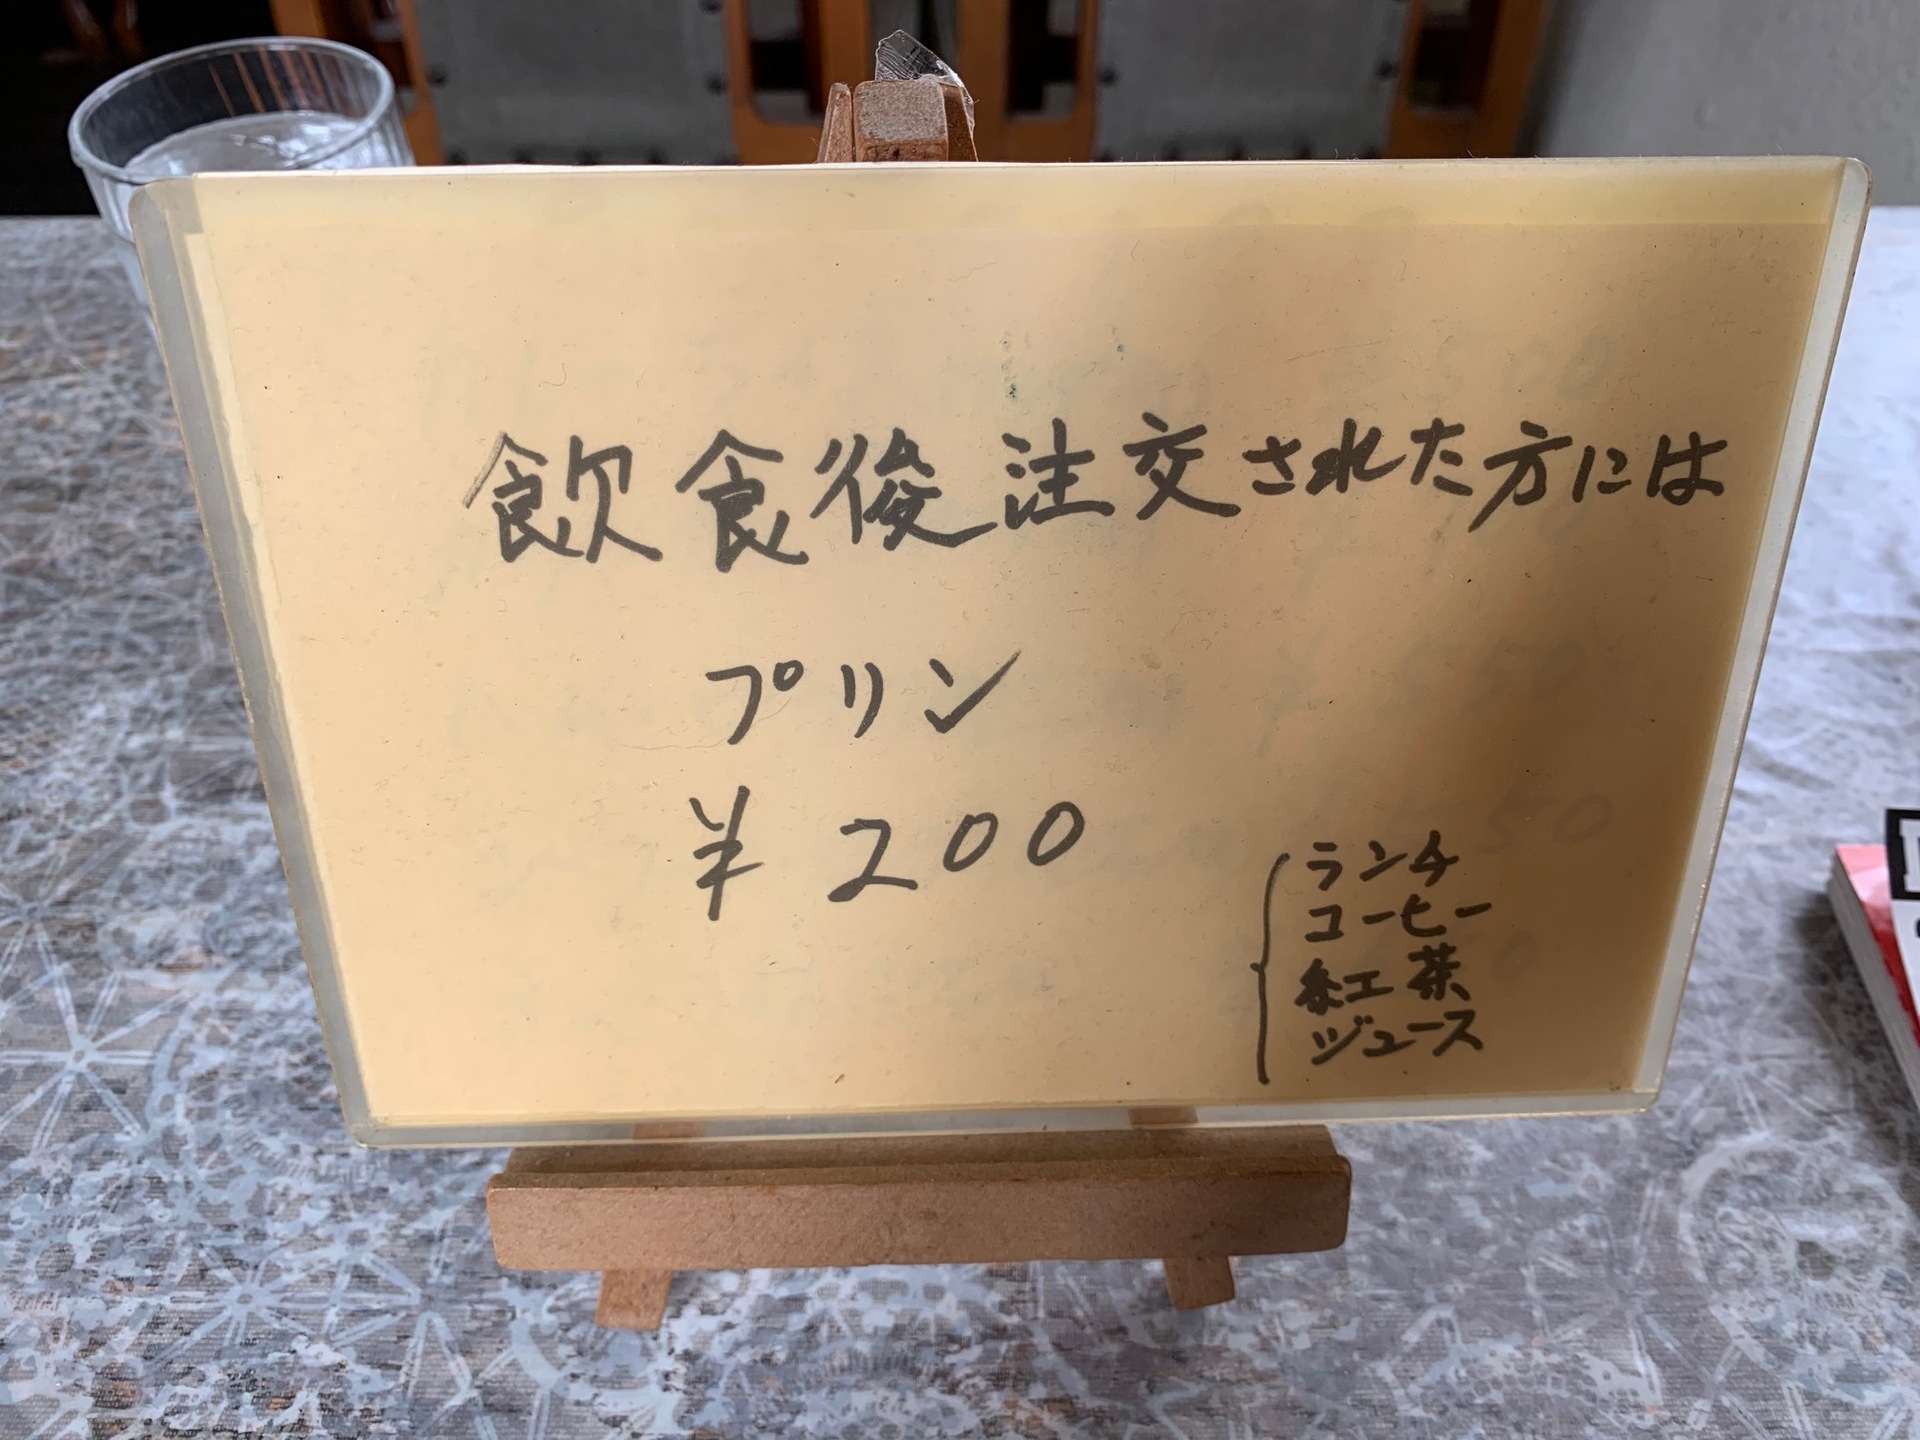 飲食後注交された方には
プリン
¥200
ランチ
コーヒー
紅茶
ジュース